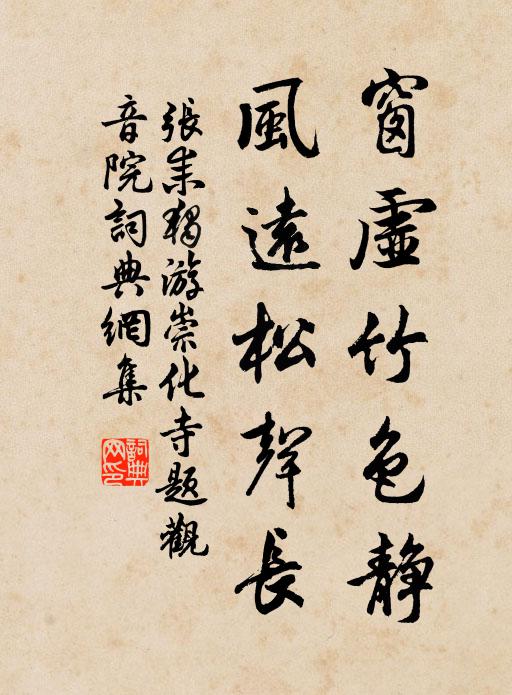 窗虛竹色靜
風遠松聲長
張耒獨游崇化寺題觀
音院詞典網集
詞典网印